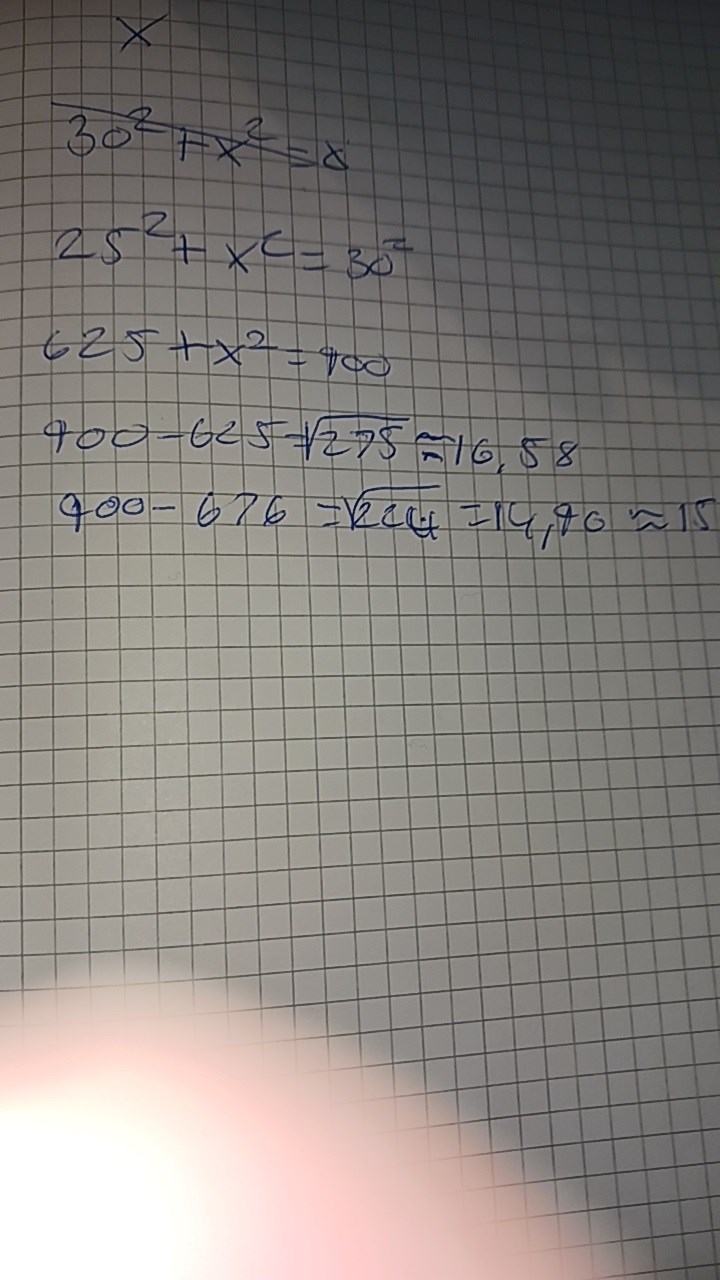 x
30² + x² = x
25² + x² = 30²
625 + x² = 900
900 - 625 = √275 ≈ 16,58
900 - 676 = √224 = 14,90 ≈ 15